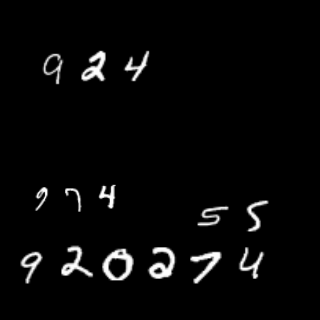 924
974
55
920274